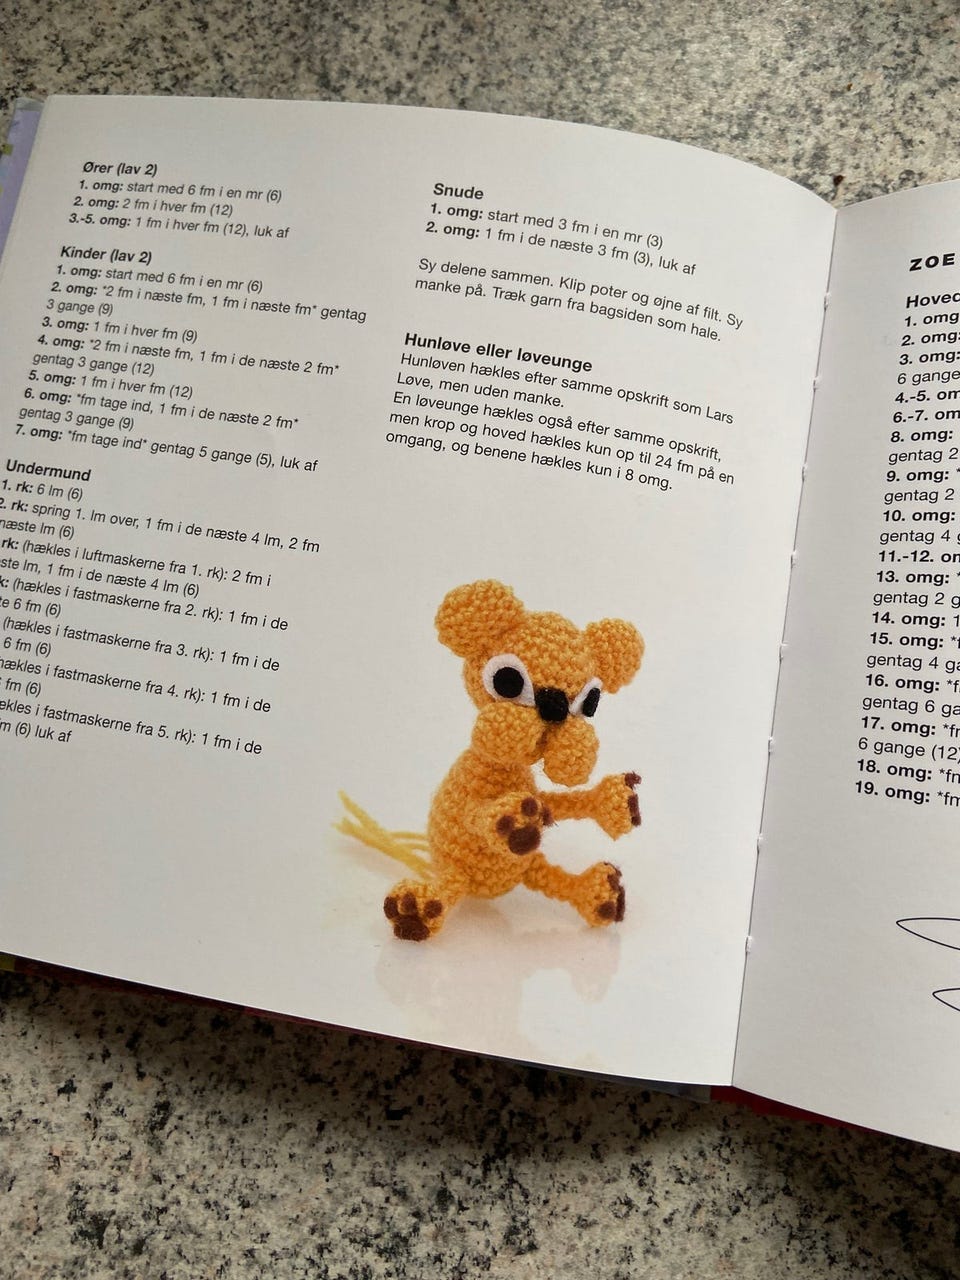 Ører (lav 2)
1. omg: start med 6 fm i en mr (6)
2. omg: 2 fm i hver fm (12)
3.-5. omg: 1 fm i hver fm (12), luk af
Kinder (lav 2)
1. omg: start med 6 fm i en mr (6)
2. omg: *2 fm i næste fm, 1 fm i næste fm* gentag
3 gange (9)
3. omg: 1 fm i hver fm (9)
4. omg: *2 fm i næste fm, 1 fm i de næste 2 fm*
gentag 3 gange (12)
5. omg: 1 fm i hver fm (12)
6. omg: *fm tage ind, 1 fm i de næste 2 fm*
gentag 3 gange (9)
7. omg: *fm tage ind* gentag 5 gange (5), luk af
Undermund
1. rk: 6 lm (6)
2. rk: spring 1. lm over, 1 fm i de næste 4 lm, 2 fm
næste lm (6)
rk: (hækles i luftmaskerne fra 1. rk): 2 fm i
ste lm, 1 fm i de næste 4 lm (6)
k: (hækles i fastmaskerne fra 2. rk): 1 fm i de
te 6 fm (6)
(hækles i fastmaskerne fra 3. rk): 1 fm i de
6 fm (6)
hækles i fastmaskerne fra 4. rk): 1 fm i de
fm (6)
ekles i fastmaskerne fra 5. rk): 1 fm i de
m (6) luk af
Snude
1. omg: start med 3 fm i en mr (3)
2. omg: 1 fm i de næste 3 fm (3), luk af
Sy delene sammen. Klip poter og øjne af filt. Sy
manke på. Træk garn fra bagsiden som hale.
Hunløve eller løveunge
Hunløven hækles efter samme opskrift som Lars
Løve, men uden manke.
En løveunge hækles også efter samme opskrift,
men krop og hoved hækles kun op til 24 fm på en
omgang, og benene hækles kun i 8 omg.
ZOE
Hoved
1. omg
2. omg:
3. omg:
6 gange
4.-5. om
6.-7. om
8. omg:
gentag 2
9. omg: *
gentag 2
10. omg:
gentag 4 g
11.-12. on
13. omg: *
gentag 2 g
14. omg: 1
15. omg: *f
gentag 4 ga
16. omg: *f
gentag 6 ga
17. omg: *fr
6 gange (12)
18. omg: *fn
19. omg: *fm